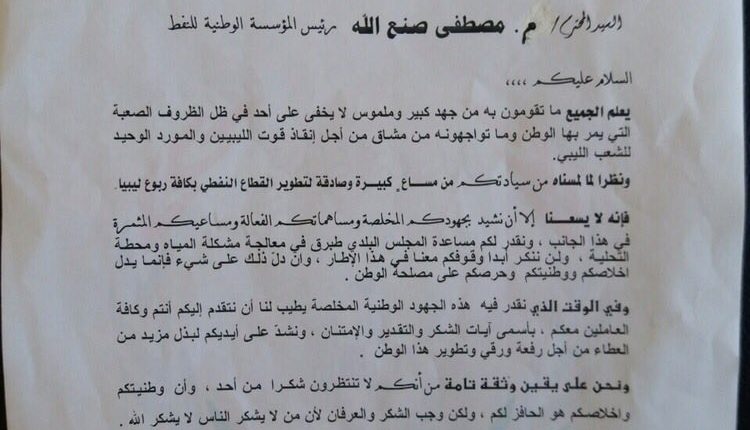 السيد المحترم / م. مصطفى صنع الله رئيس المؤسسة الوطنية للنفط
السلام عليكم ,,,,
يعلم الجميع ما تقومون به من جهد كبير وملموس لا يخفى على أحد في ظل الظروف الصعبة
التي يمر بها الوطن وما تواجهونه من مشاق من أجل إنقاذ قوت الليبيين والمورد الوحيد
للشعب الليبي.
ونظرا لما لمسناه من سيادتكم من مساعٍ كبيرة وصادقة لتطوير القطاع النفطي بكافة ربوع ليبيا.
فإنه لا يسعنا إلا أن نشيد بجهودكم المخلصة ومساهماتكم الفعالة ومساعيكم المثمرة
في هذا الجانب ، ونقدر لكم مساعدة المجلس البلدي طبرق في معالجة مشكلة المياه ومحطة
التحلية ، ولن ننكر أبدا وقوفكم معنا في هذا الإطار ، وان دلّ ذلك على شيء فإنما يدل
اخلاصكم ووطنيتكم وحرصكم على مصلحة الوطن .
وفي الوقت الذي نقدر فيه هذه الجهود الوطنية المخلصة يطيب لنا أن نتقدم إليكم أنتم وكافة
العاملين معكم ، بأسمى آيات الشكر والتقدير والإمتنان ، ونشدّ على أيديكم لبذل مزيد من
العطاء من أجل رفعة ورقي وتطوير هذا الوطن .
ونحن على يقين وثقة تامة من أنكم لا تنتظرون شكرا من أحد ، وأن وطنيتكم
واخلاصكم هو الحافز لكم ، ولكن وجب الشكر والعرفان لأن من لا يشكر الناس لا يشكر الله .